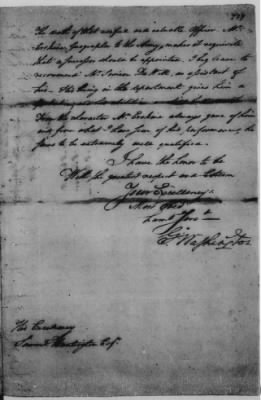 The death of that useful and valuable Officer Mr.
Erskine, Geographer to the Army, makes it requisite
that a successor should be appointed. I beg leave to
recommend Mr. Simeon De Witt, an assistant of
his. His being in the department gives him a
From the character Mr. Erskine always gave of him
and from what I have seen of his performances, he
seems to be extremely well qualified.
I have the honor to be
With the greatest respect and Esteem
Your Excellency's
Most Obed
Go: Washington
His Excellency
Samuel Huntington Esq.